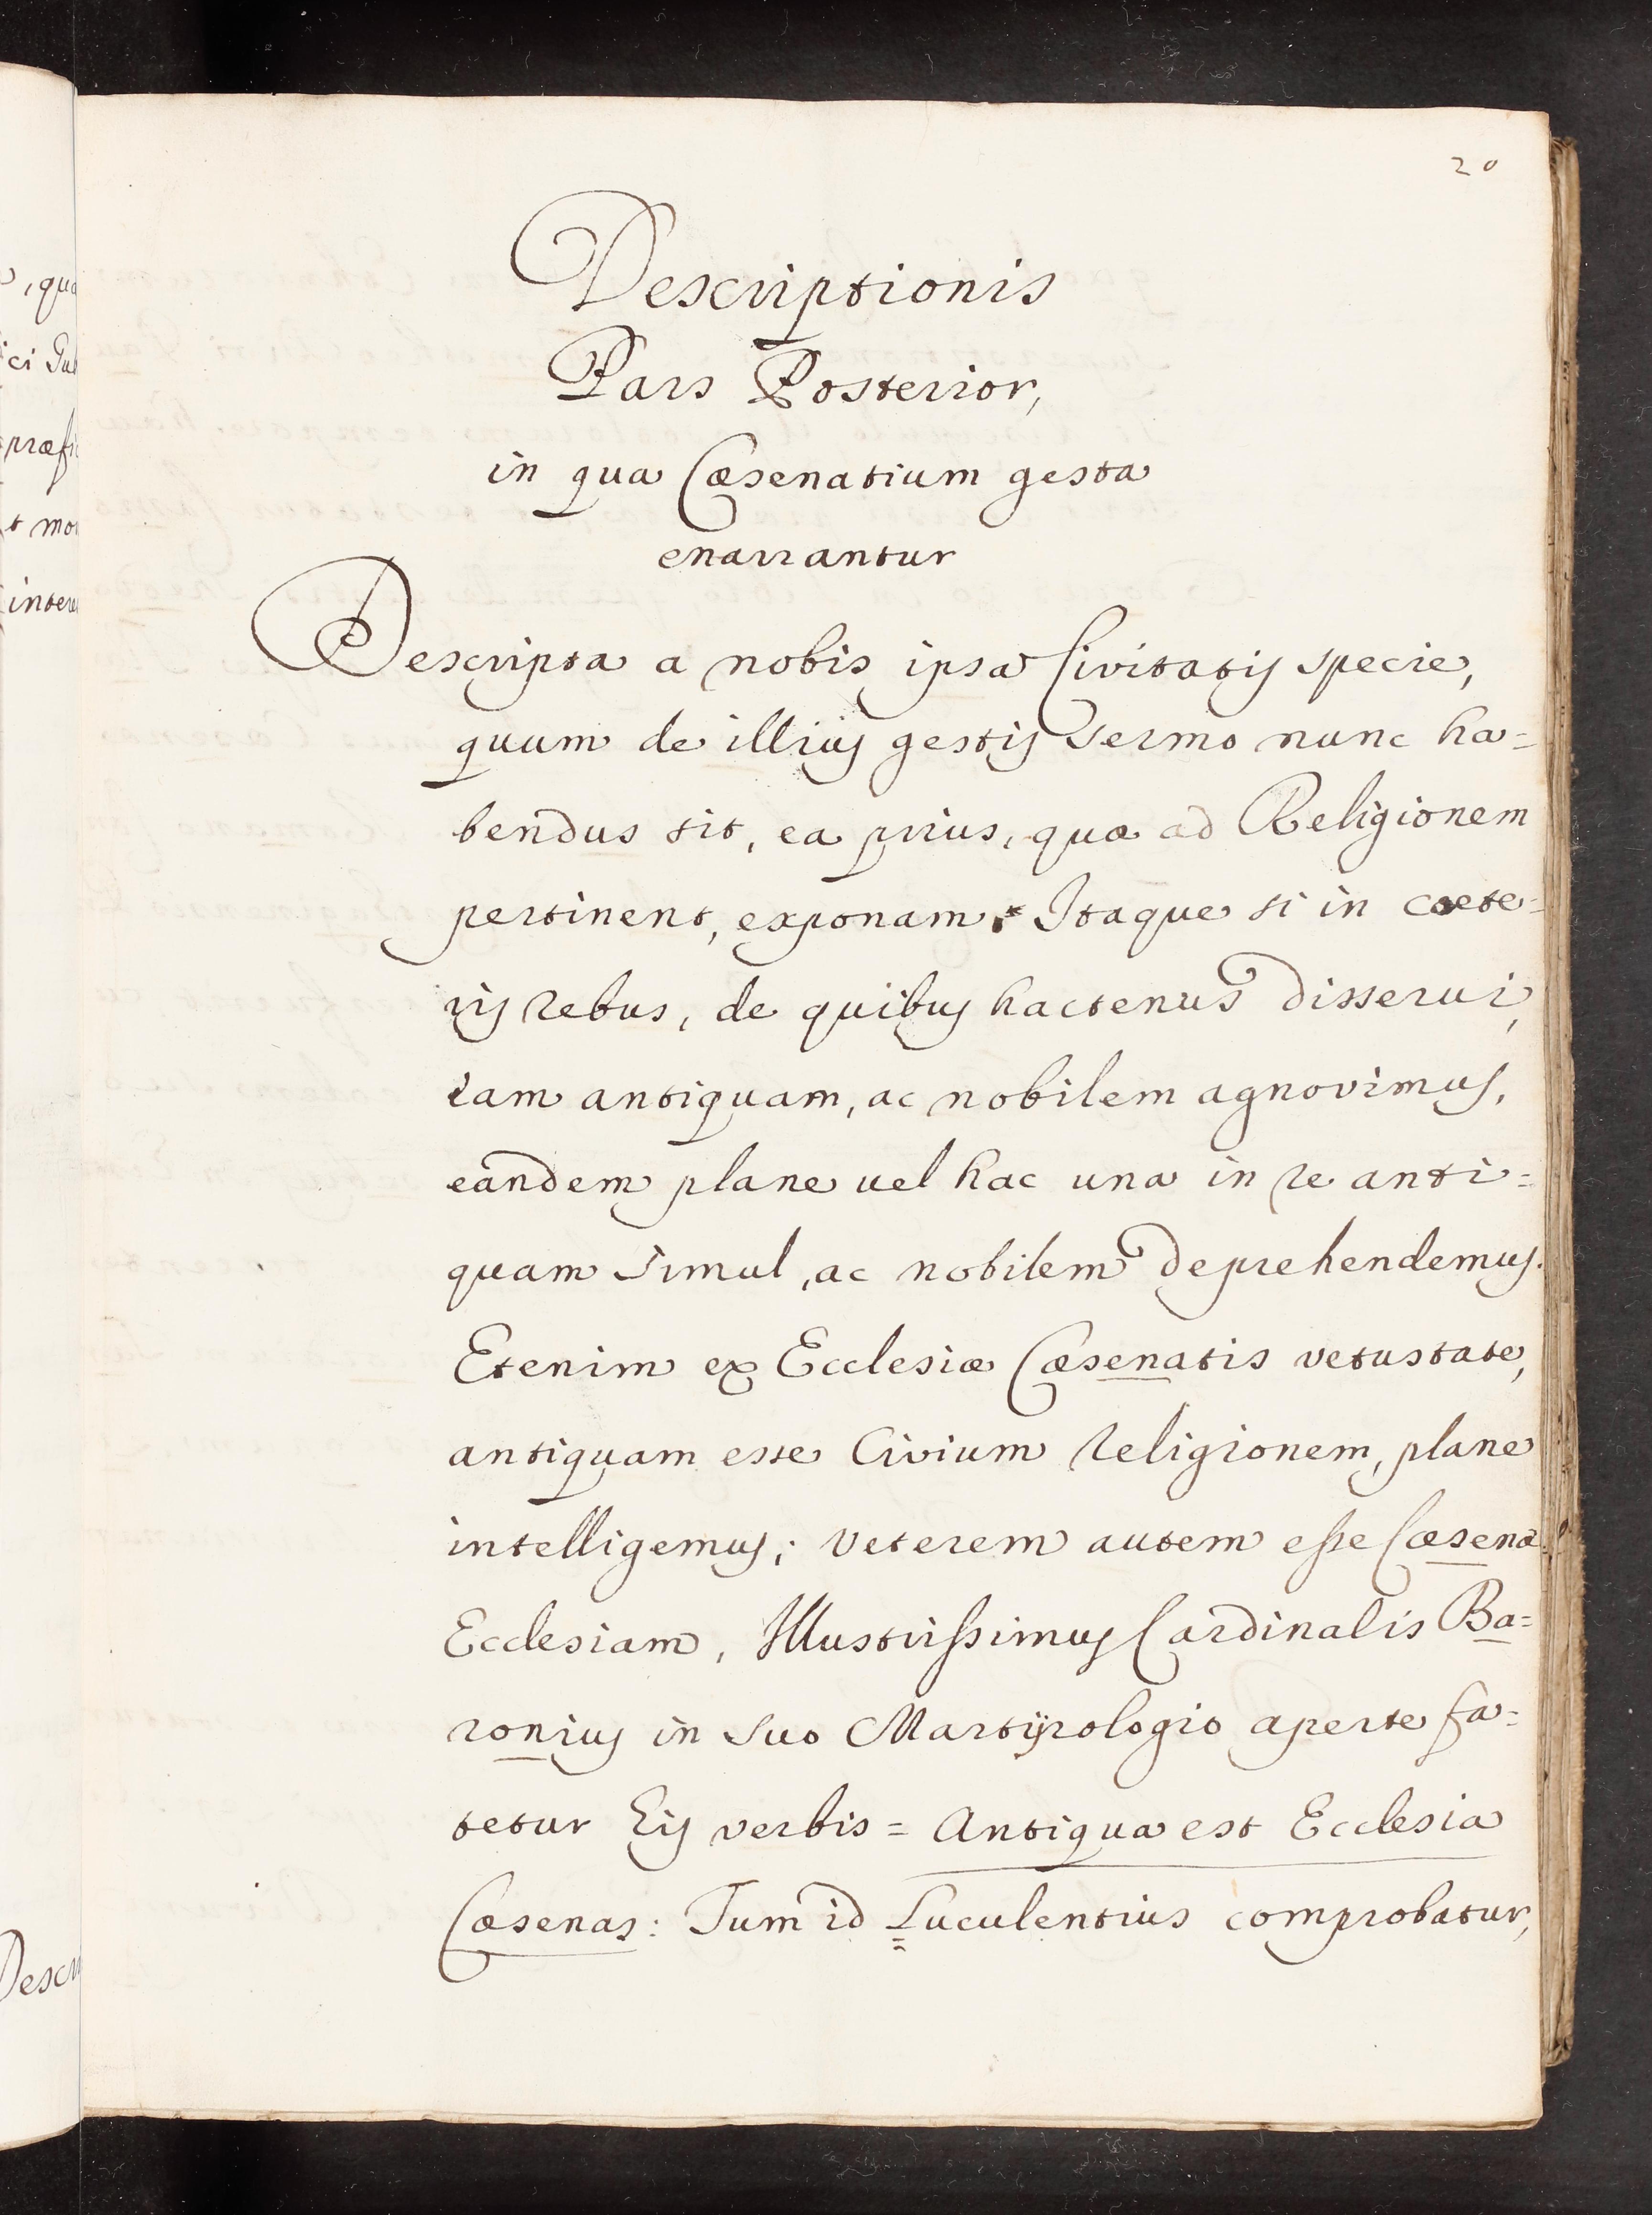 20
Descriptionis
Pars Posterior,
in qua Cæsenatium gesta
enarrantur
Descripta a nobis ipsa Civitatis specie,
quum de illius gestis sermo nunc ha=
bendus sit, ea prius, quæ ad Religionem
pertinent, exponam. Itaque si in coete=
ris rebus, de quibus hactenus disserui,
eam antiquam, ac nobilem agnovimus,
eandem plane uel hac una in re anti=
quam simul, ac nobilem deprehendemus.
Etenim ex Ecclesiæ Cæsenatis vetustate,
antiquam esse Civium religionem, plane
intelligemus; veterem autem esse Cæsenæ
Ecclesiam, Illustrissimus Cardinalis Ba=
ronius in suo Martÿrologio aperte fa=
tetur Eis verbis = Antiqua est Ecclesia
Cæsenas: Tum id Luculentius comprobatur,